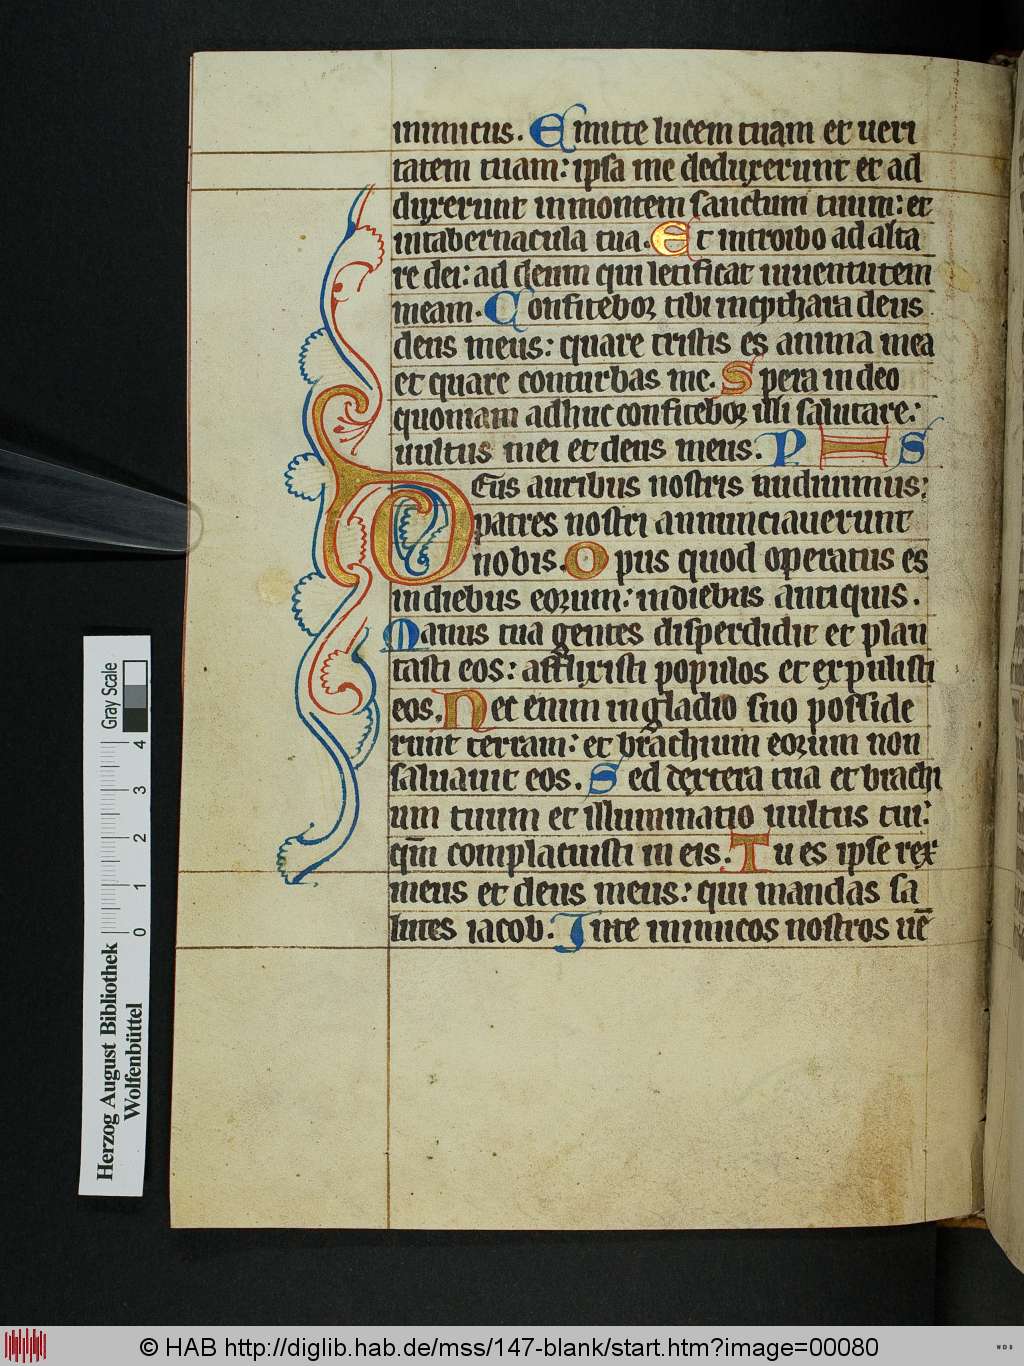 inimicus. Emitte lucem tuam et ueri
tatem tuam: ipsa me deduxerunt et ad
duxerunt in montem sanctum tuum: et
in tabernacula tua. Et introibo ad alta
re dei: ad deum qui letificat iuuentutem
meam. Confitebor tibi in cythara deus
deus meus: quare tristis es anima mea
et quare conturbas me. Spera in deo
quoniam adhuc confitebor illi salutare:
uultus mei et deus meus. PS
Deus auribus nostris audiuimus:
patres nostri annunciauerunt
nobis. Opus quod operatus es
in diebus eorum: in diebus antiquis.
Manus tua gentes disperdidit et plan
tasti eos: afflixisti populos et expulisti
eos. Nec enim in gladio suo posside
runt terram: et brachium eorum non
saluauit eos. Sed dextera tua et brachi
um tuum et illuminatio uultus tui:
qm̄ complacuisti in eis. Tu es ipse rex
meus et deus meus: qui mandas sa
lutes iacob. In te inimicos nostros uē
Gray Scale
0 1 2 3 4
Herzog August Bibliothek
Wolfenbüttel
© HAB http://diglib.hab.de/mss/147-blank/start.htm?image=00080